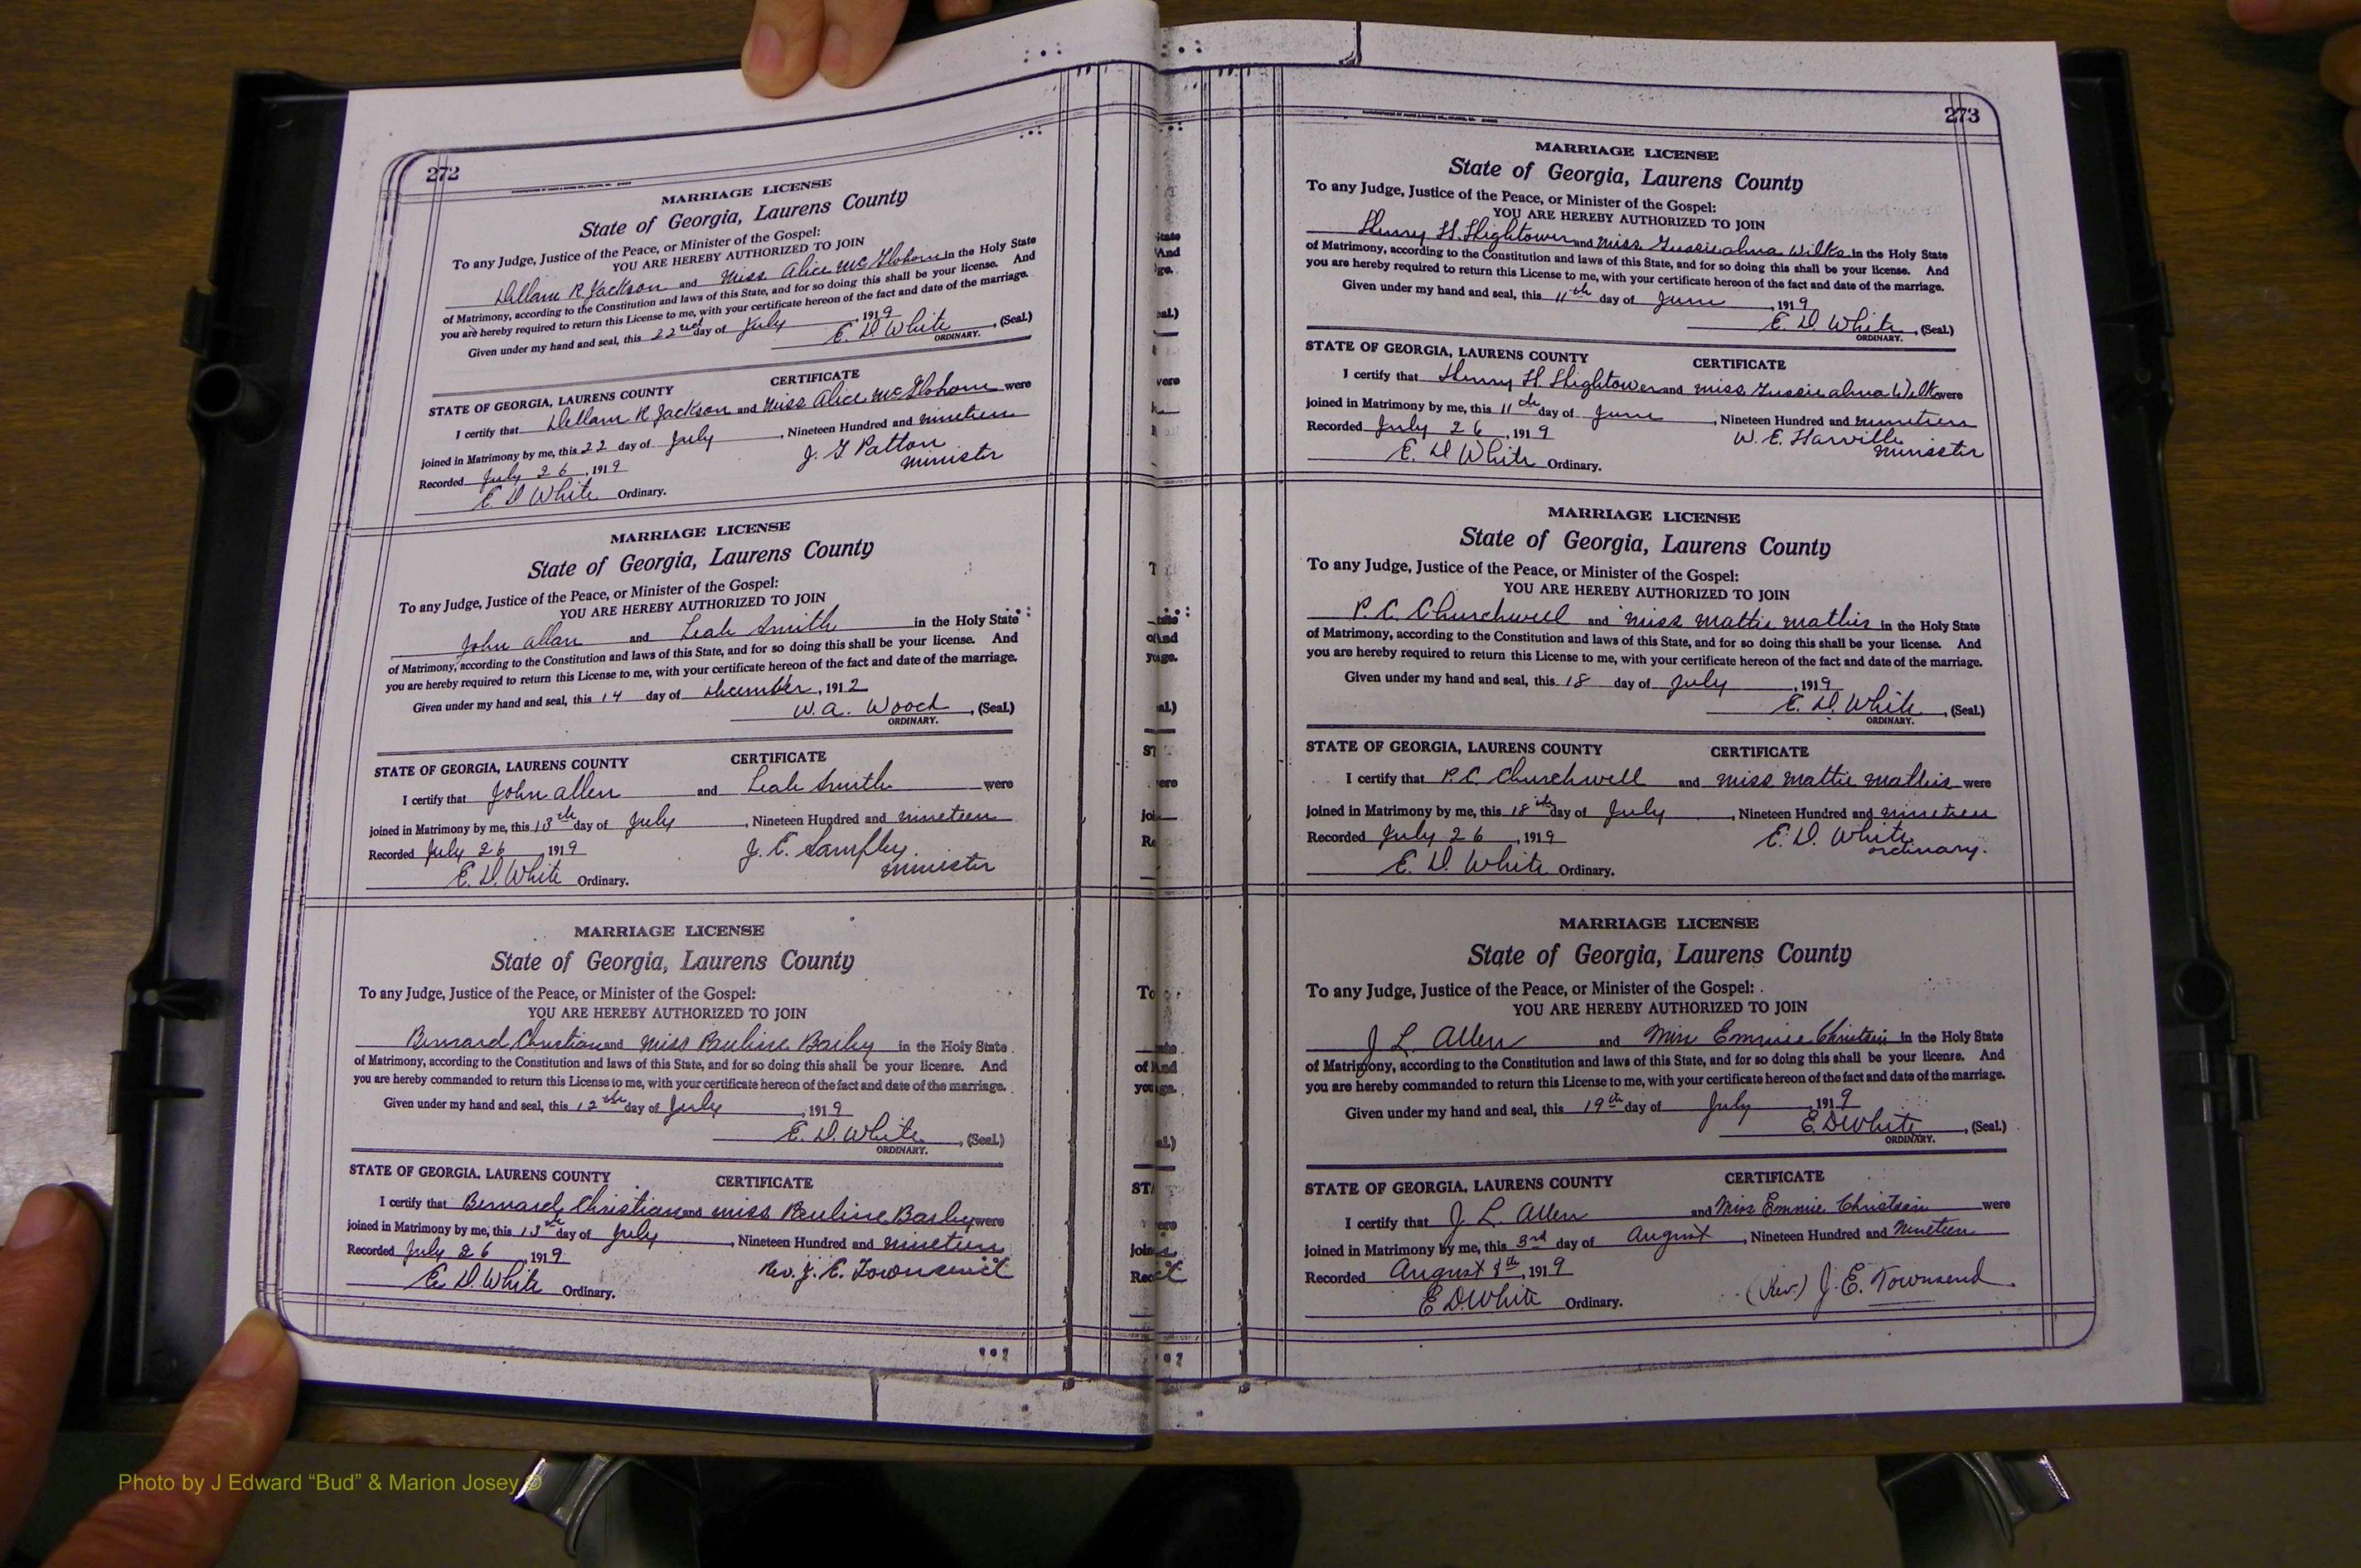 272
MARRIAGE LICENSE
State of Georgia, Laurens County
To any Judge, Justice of the Peace, or Minister of the Gospel:
YOU ARE HEREBY AUTHORIZED TO JOIN
Dellam R. Jackson and Miss Alice McGlohorn in the Holy State
of Matrimony, according to the Constitution and laws of this State, and for so doing this shall be your license. And
you are hereby required to return this License to me, with your certificate hereon of the fact and date of the marriage.
Given under my hand and seal, this 22nd day of July, 1919
E. D. White, (Seal.)
ORDINARY.
STATE OF GEORGIA, LAURENS COUNTY CERTIFICATE
I certify that Dellam R Jackson and Miss Alice McGlohorn were
joined in Matrimony by me, this 22 day of July, Nineteen Hundred and nineteen
Recorded July 26, 1919 J. G Patton
minister
E. D White Ordinary.
MARRIAGE LICENSE
State of Georgia, Laurens County
To any Judge, Justice of the Peace, or Minister of the Gospel:
YOU ARE HEREBY AUTHORIZED TO JOIN
John Allan and Leah Smith in the Holy State
of Matrimony, according to the Constitution and laws of this State, and for so doing this shall be your license. And
you are hereby required to return this License to me, with your certificate hereon of the fact and date of the marriage.
Given under my hand and seal, this 14 day of December, 1912
W. A. Wood, (Seal.)
ORDINARY.
STATE OF GEORGIA, LAURENS COUNTY CERTIFICATE
I certify that John Allen and Leah Smith were
joined in Matrimony by me, this 13th day of July, Nineteen Hundred and nineteen
Recorded July 26, 1919 J. E.
minister
E. D. White Ordinary.
MARRIAGE LICENSE
State of Georgia, Laurens County
To any Judge, Justice of the Peace, or Minister of the Gospel:
YOU ARE HEREBY AUTHORIZED TO JOIN
Bernard Christian and Miss Pauline Bailey in the Holy State
of Matrimony, according to the Constitution and laws of this State, and for so doing this shall be your license. And
you are hereby commanded to return this License to me, with your certificate hereon of the fact and date of the marriage.
Given under my hand and seal, this 12th day of July, 1919
E. D. White, (Seal.)
ORDINARY.
STATE OF GEORGIA, LAURENS COUNTY CERTIFICATE
I certify that Bernard Christian and miss Pauline Bailey were
joined in Matrimony by me, this 13th day of July, Nineteen Hundred and nineteen
Recorded July 26, 1919 Rev. J. E. Townsend
E. D. White Ordinary.
273
MARRIAGE LICENSE
State of Georgia, Laurens County
To any Judge, Justice of the Peace, or Minister of the Gospel:
YOU ARE HEREBY AUTHORIZED TO JOIN
Henry H. Hightower and Miss Gussie Alma Wilks in the Holy State
of Matrimony, according to the Constitution and laws of this State, and for so doing this shall be your license. And
you are hereby required to return this License to me, with your certificate hereon of the fact and date of the marriage.
Given under my hand and seal, this 11th day of June, 1919
E. D. White, (Seal.)
ORDINARY.
STATE OF GEORGIA, LAURENS COUNTY CERTIFICATE
I certify that Henry H. Hightower and miss Gussie Alma Wilks were
joined in Matrimony by me, this 11th day of June, Nineteen Hundred and nineteen
Recorded July 26, 1919 W. E. Harville
Minister
E. D. White Ordinary.
MARRIAGE LICENSE
State of Georgia, Laurens County
To any Judge, Justice of the Peace, or Minister of the Gospel:
YOU ARE HEREBY AUTHORIZED TO JOIN
P. C. Churchwell and Miss Mattie Mathis in the Holy State
of Matrimony, according to the Constitution and laws of this State, and for so doing this shall be your license. And
you are hereby required to return this License to me, with your certificate hereon of the fact and date of the marriage.
Given under my hand and seal, this 18 day of July, 1919
E. D. White, (Seal.)
ORDINARY.
STATE OF GEORGIA, LAURENS COUNTY CERTIFICATE
I certify that P. C. Churchwell and miss Mattie Mathis were
joined in Matrimony by me, this 18th day of July, Nineteen Hundred and nineteen
Recorded July 26, 1919 E. D. White
ordinary.
E. D. White Ordinary.
MARRIAGE LICENSE
State of Georgia, Laurens County
To any Judge, Justice of the Peace, or Minister of the Gospel:
YOU ARE HEREBY AUTHORIZED TO JOIN
J L. Allen and Miss Emmie Christein in the Holy State
of Matrimony, according to the Constitution and laws of this State, and for so doing this shall be your license. And
you are hereby commanded to return this License to me, with your certificate hereon of the fact and date of the marriage.
Given under my hand and seal, this 19th day of July, 1919
E. D White, (Seal.)
ORDINARY.
STATE OF GEORGIA, LAURENS COUNTY CERTIFICATE
I certify that J. L. Allen and Miss Emmie Christein were
joined in Matrimony by me, this 3rd day of August, Nineteen Hundred and Nineteen
Recorded August 8th, 1919 (Rev.) J. E. Townsend
E D White Ordinary.
Photo by J Edward “Bud” & Marion Josey ©